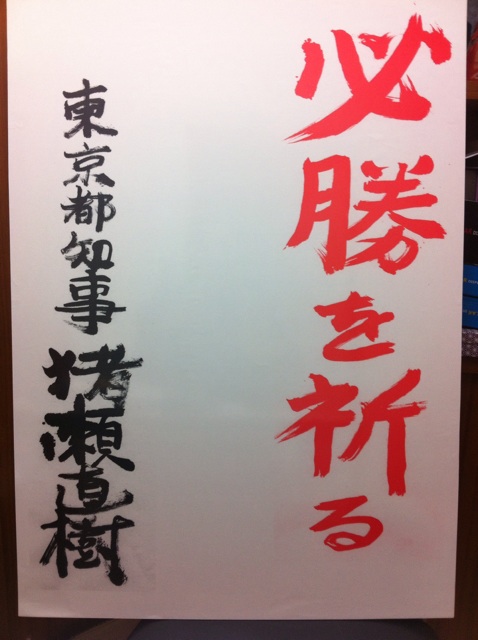 必勝を祈る
東京都知事 猪瀬直樹